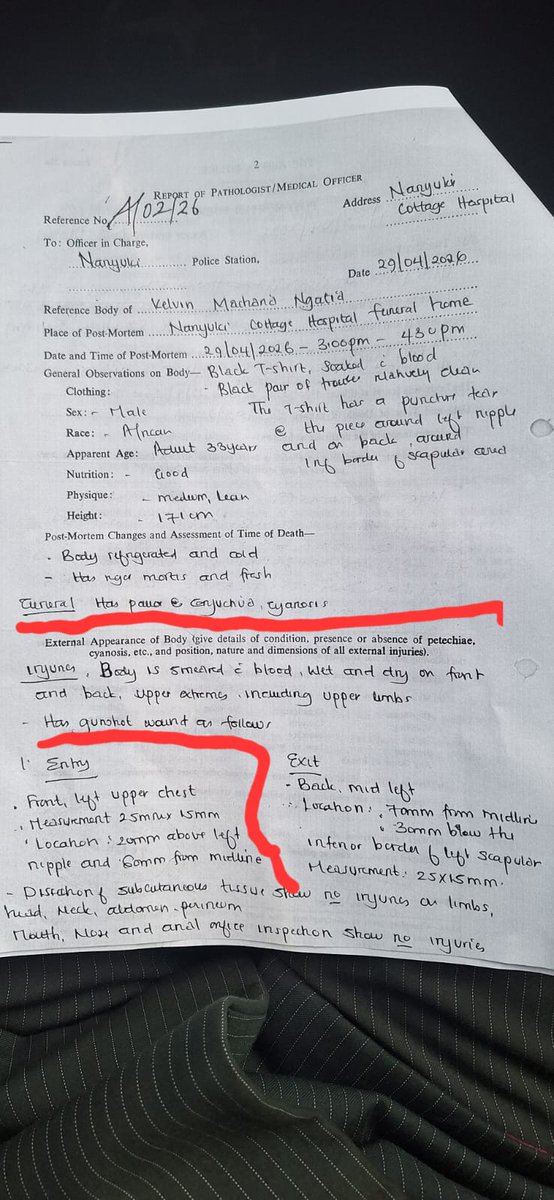 2
REPORT OF PATHOLOGIST/MEDICAL OFFICER
Reference No. A/02/26
Address Nanyuki
Cottage Hospital
To: Officer in Charge,
Nanyuki Police Station,
Date 29/04/2026
Reference Body of Kelvin Machana Ngatia
Place of Post-Mortem Nanyuki Cottage Hospital funeral home
Date and Time of Post-Mortem 29/04/2026 - 3:00pm - 430pm
General Observations on Body— Black T-shirt, soaked c blood
Clothing: - Black pair of trouser relatively clean
Sex:- Male The T-shirt has a puncture tear
Race: - African @ the piece around left nipple
Apparent Age: Adult 33years and on back, around
Nutrition: - Good Inf border of scapular area
Physique: - medium, Lean
Height: - 171cm
Post-Mortem Changes and Assessment of Time of Death—
. Body refrigerated and cold
- Has rigor mortis and fresh
General Has pallor @ conjuctiva, cyanosis
External Appearance of Body (give details of condition, presence or absence of petechiae,
cyanosis, etc., and position, nature and dimensions of all external injuries).
Injuries, Body is smeared c blood, wet and dry on front
and back, upper extremes, including upper limbs
- Has gunshot wound as follows
1. Entry
. Front, left upper chest
Measurement 25mm x 15mm
Location : 20mm above left
nipple and 60mm from midline
Exit
- Back, mid left
Location : 70mm from midline
30mm blow the
inferior border of left scapular
Measurement : 25x15mm.
- Disection of subcutaneous tissue show no injuries on limbs,
head, Neck, abdomen, perineum
Mouth, Nose and anal orifice inspection show no injuries